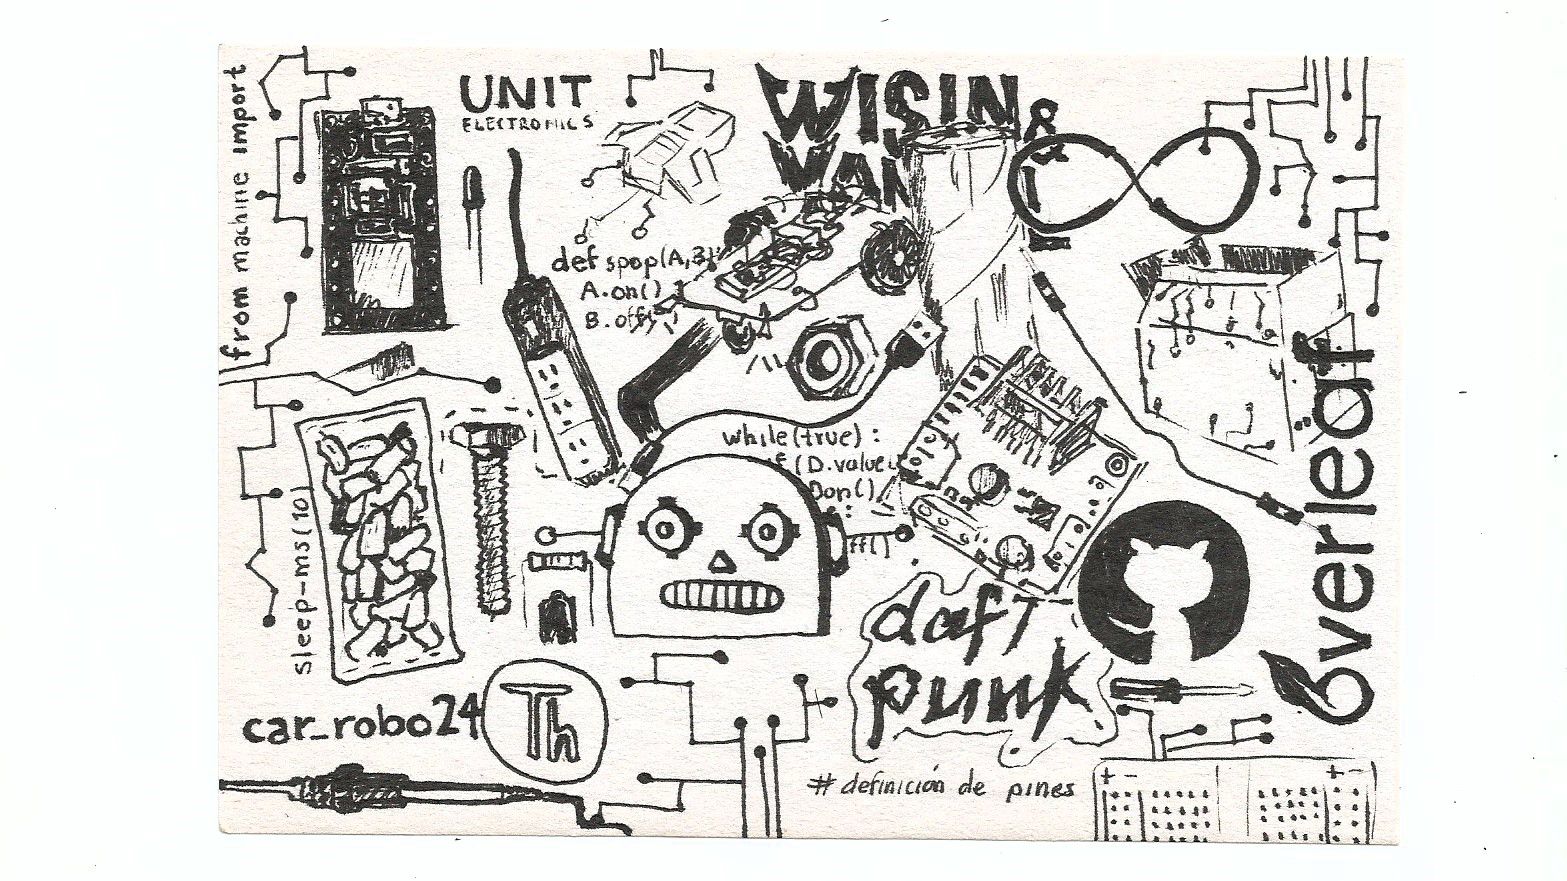 from machine import
UNIT
ELECTRONICS
WISIN &
YAN
def spop(A,B)
A.on()
B.off()
while(true):
f(D.value
Don()
e:
ff()
sleep-ms(10)
daft
punk
Overleaf
car_robo24
Th
# definición de pines
+ -
+ -